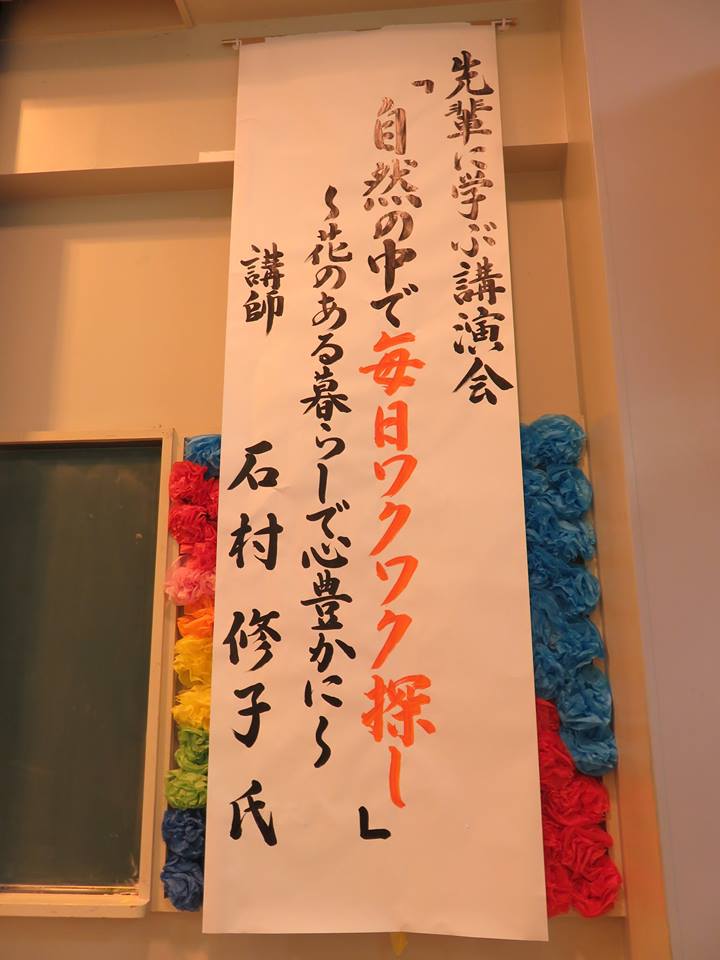 先輩に学ぶ講演会
「自然の中で毎日ワクワク探し」
～花のある暮らしで心豊かに～
講師 石村 修子 氏